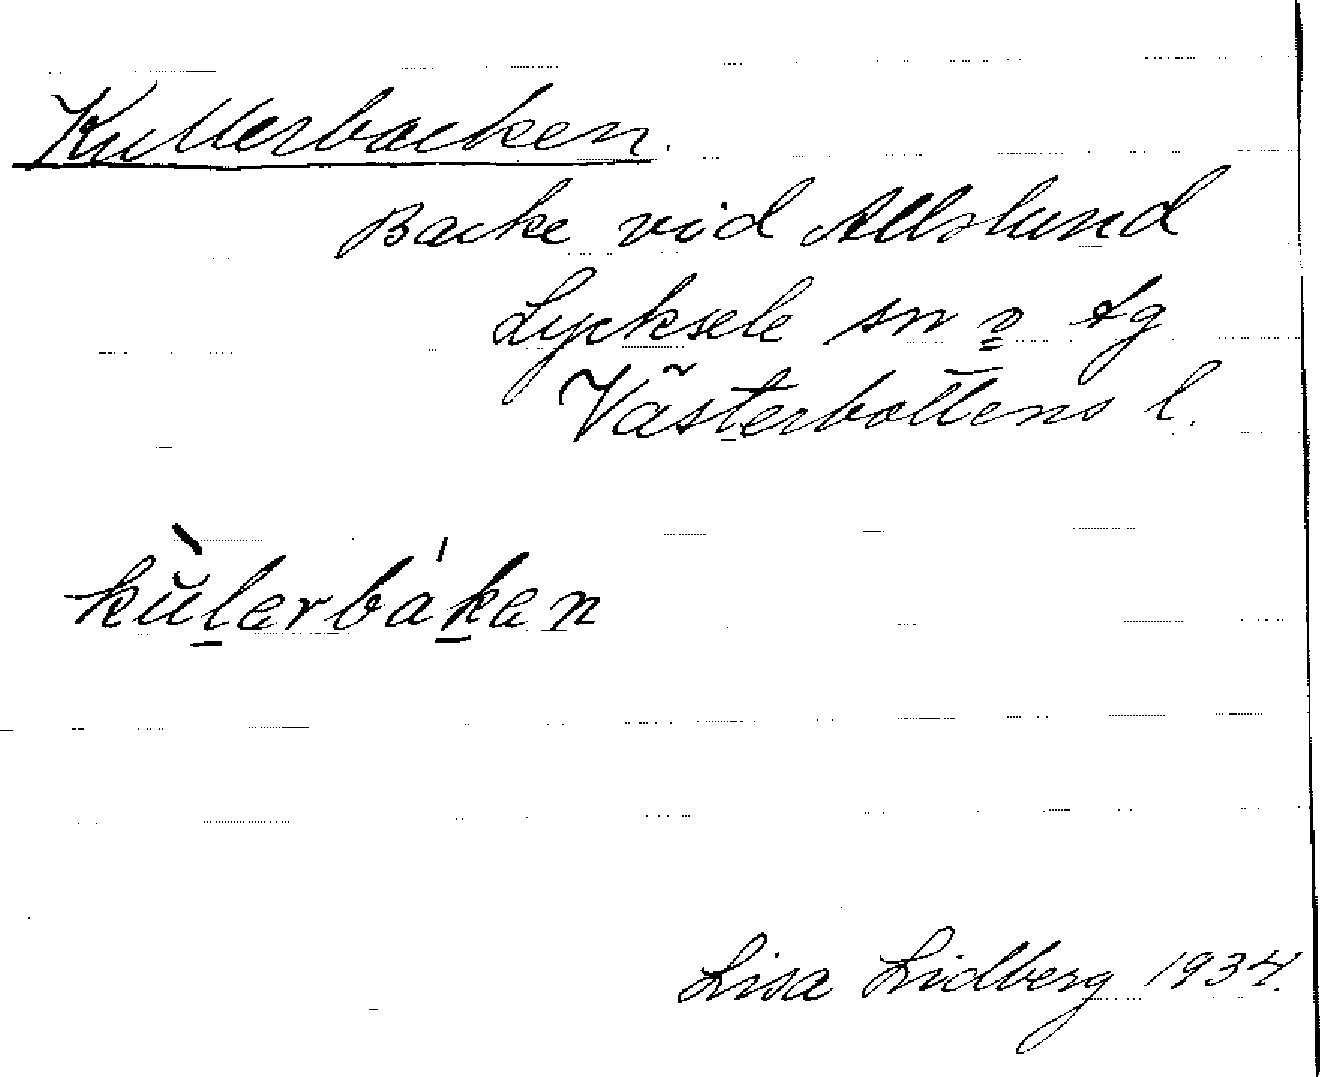 Kullerbacken.
Backe vid Allslund
Lycksele sn o tg
Västerbottens l.
kùlerbáken
Lisa Lidberg 1934.